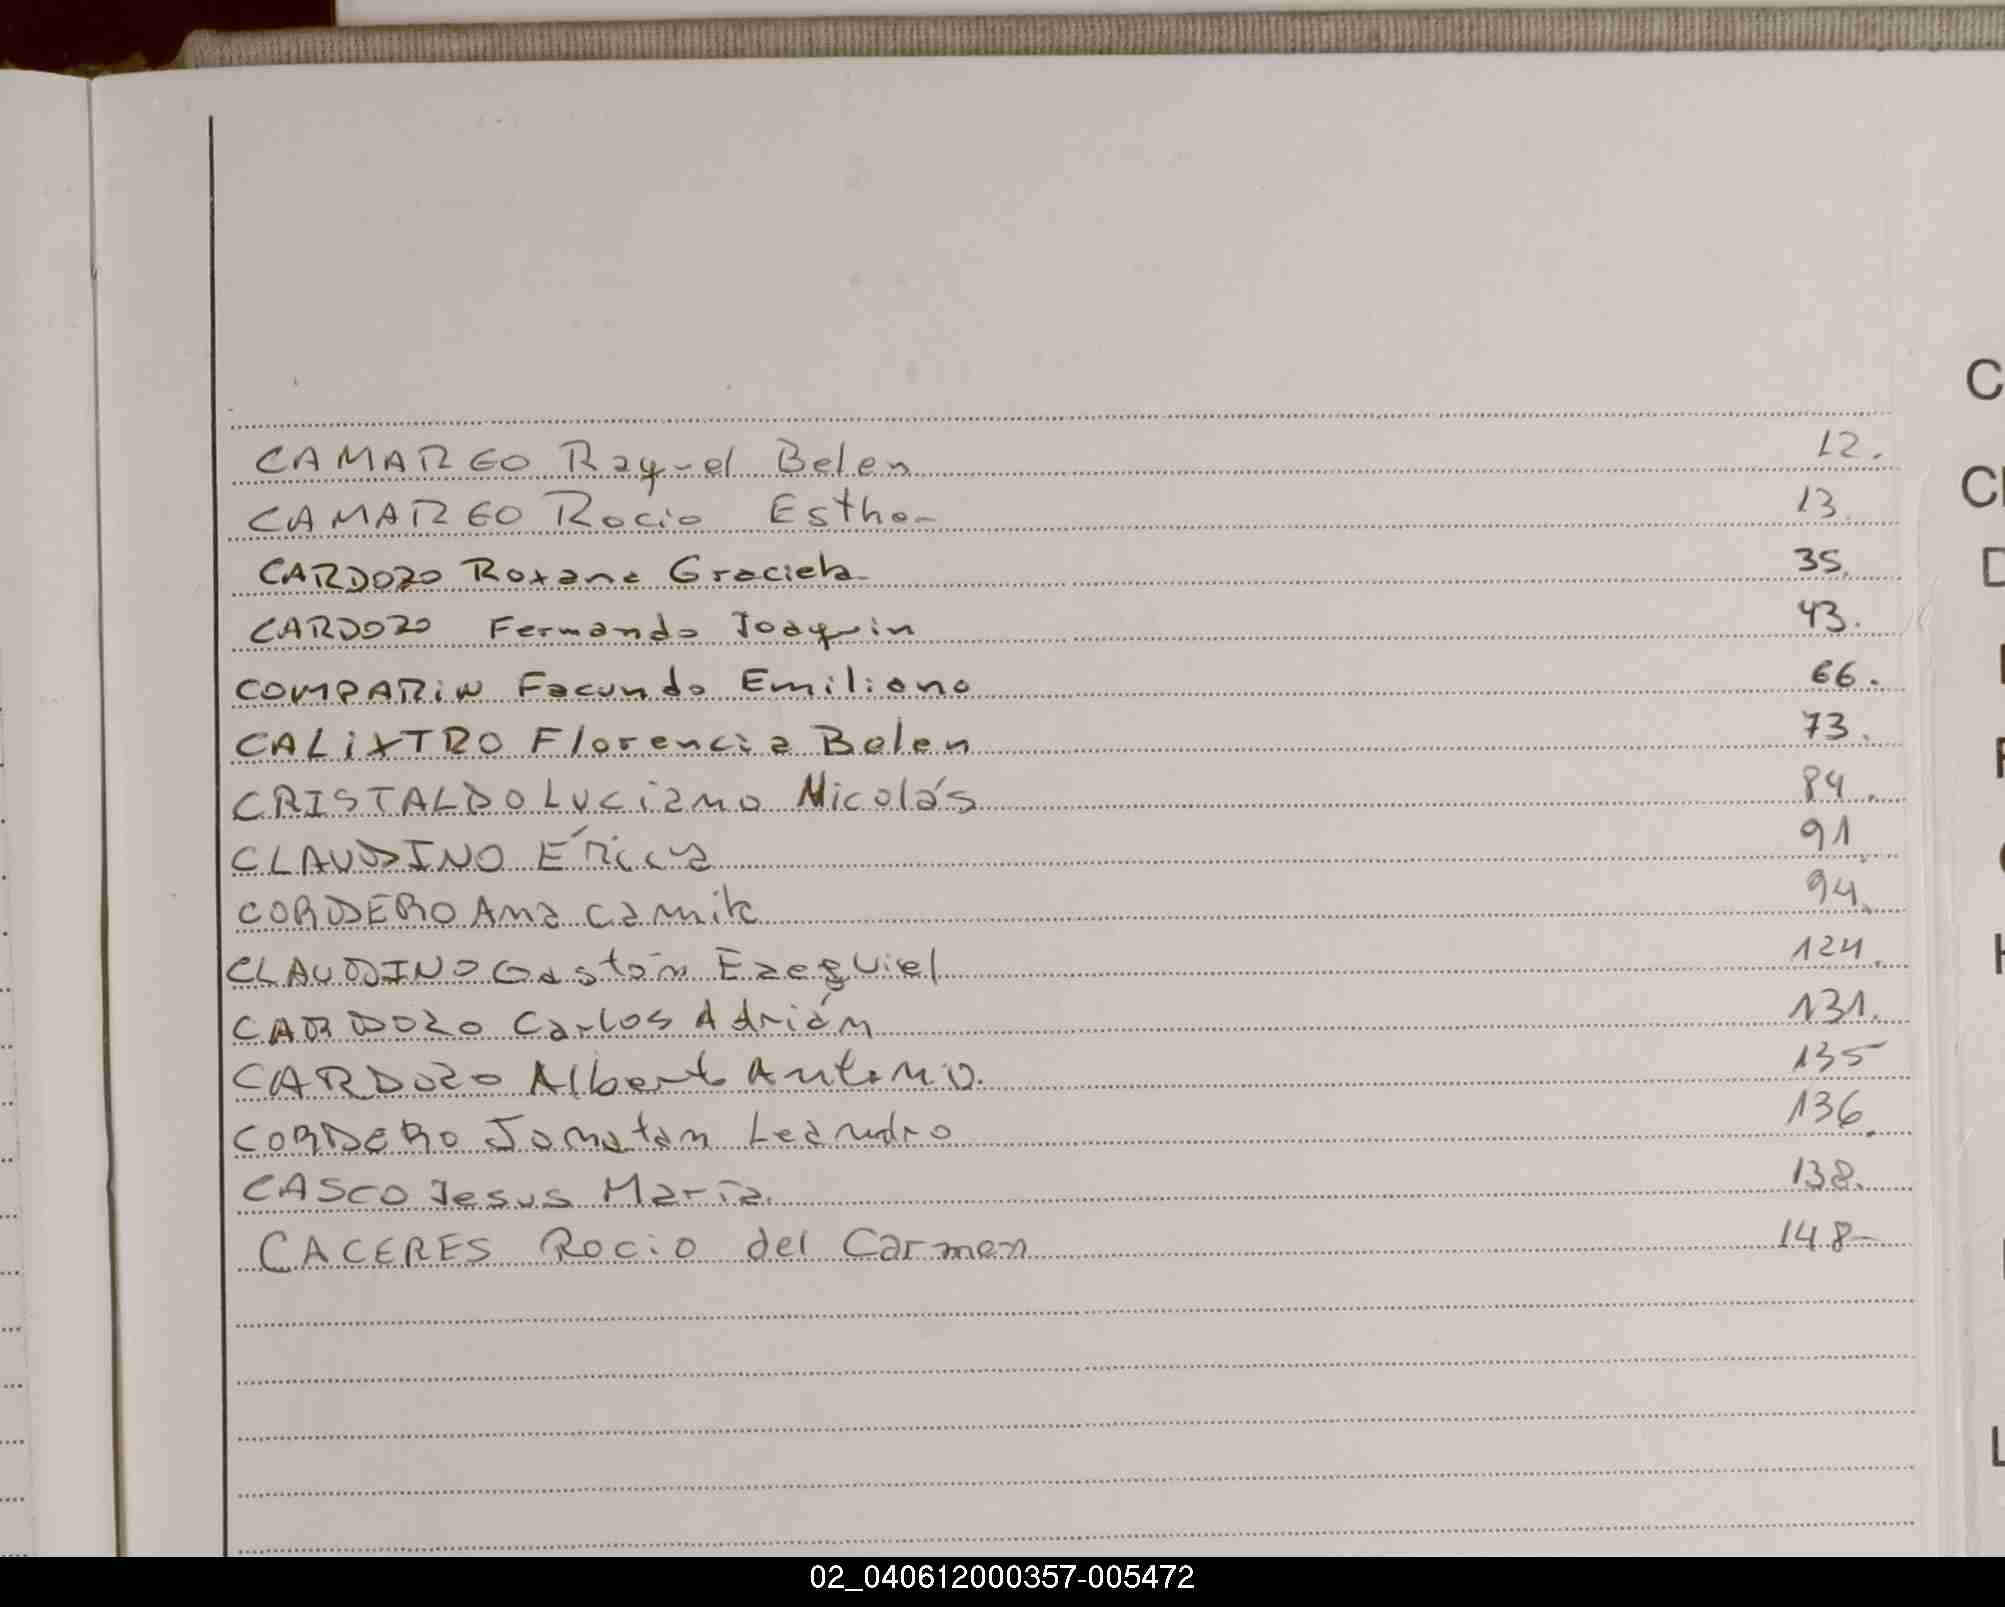 CAMARGO Raquel Belen 12.
CAMARGO Rocio Esther 13.
CARDOZO Roxana Graciela 35.
CARDOZO Fernando Joaquin 43.
COMPARiN Facundo Emiliano 66.
CALiXTRO Florencia Belen 73.
CRISTALDO Luciano Nicolás 84.
CLAUDINO 91.
CORDERO Ana Camila 94.
CLAUDINO Gastón Ezequiel 124.
CARDOZO Carlos Adrián 131.
CARDOZO Alberto Antonio. 135
CORDERO Jonatan Leandro 136.
CASCO Jesus María. 138.
CACERES Rocio del Carmen 148-
C
D
H
L
02_040612000357-005472